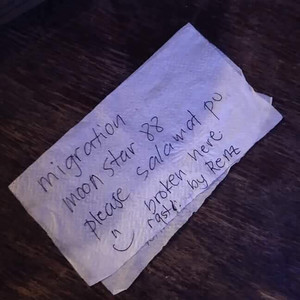 migration
moon star 88
please salamat po
:) broken here
rastr. by Renz